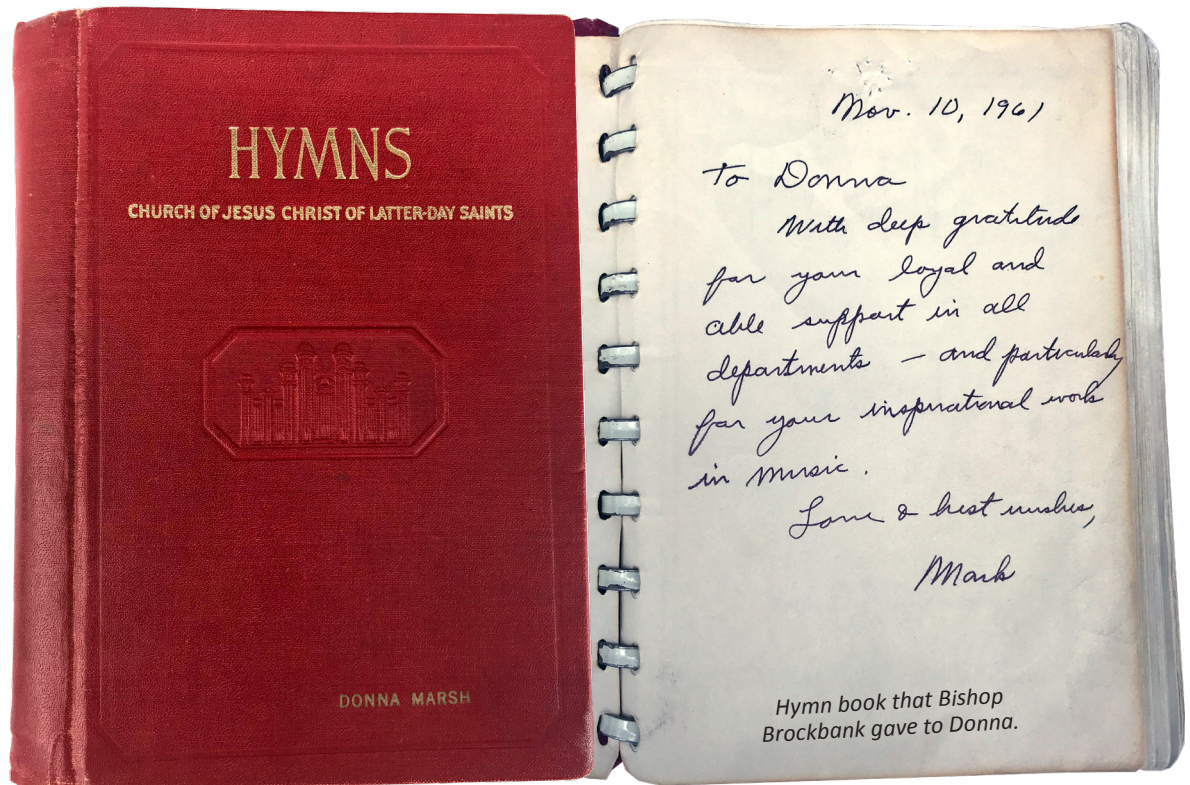 HYMNS
CHURCH OF JESUS CHRIST OF LATTER-DAY SAINTS
DONNA MARSH
Nov. 10, 1961
To Donna
With deep gratitude
for your loyal and
able support in all
departments — and particularly
for your inspirational work
in music.
Love & best wishes,
Mark
Hymn book that Bishop
Brockbank gave to Donna.